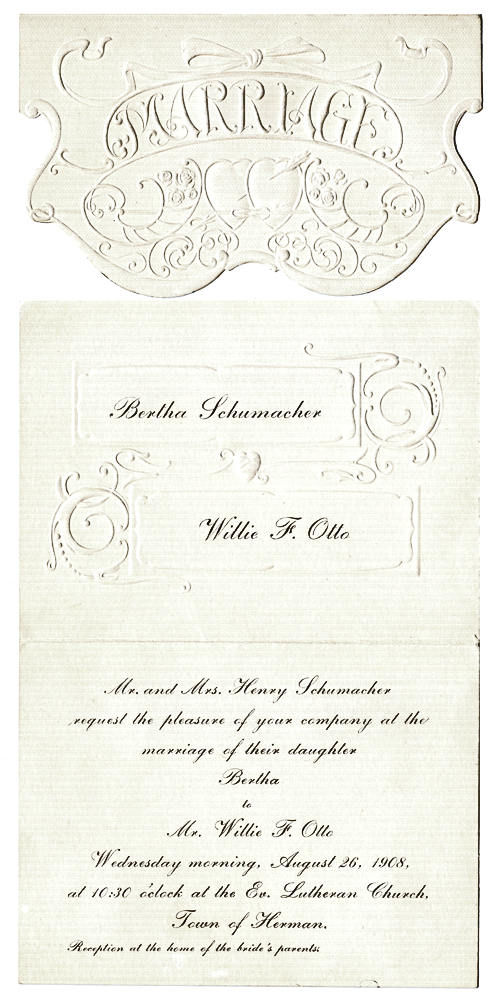 MARRIAGE
Bertha Schumacher
Willie F. Otto
Mr. and Mrs. Henry Schumacher
request the pleasure of your company at the
marriage of their daughter
Bertha
to
Mr. Willie F. Otto
Wednesday morning, August 26, 1908,
at 10:30 o'clock at the Ev. Lutheran Church,
Town of Herman.
Reception at the home of the bride's parents.